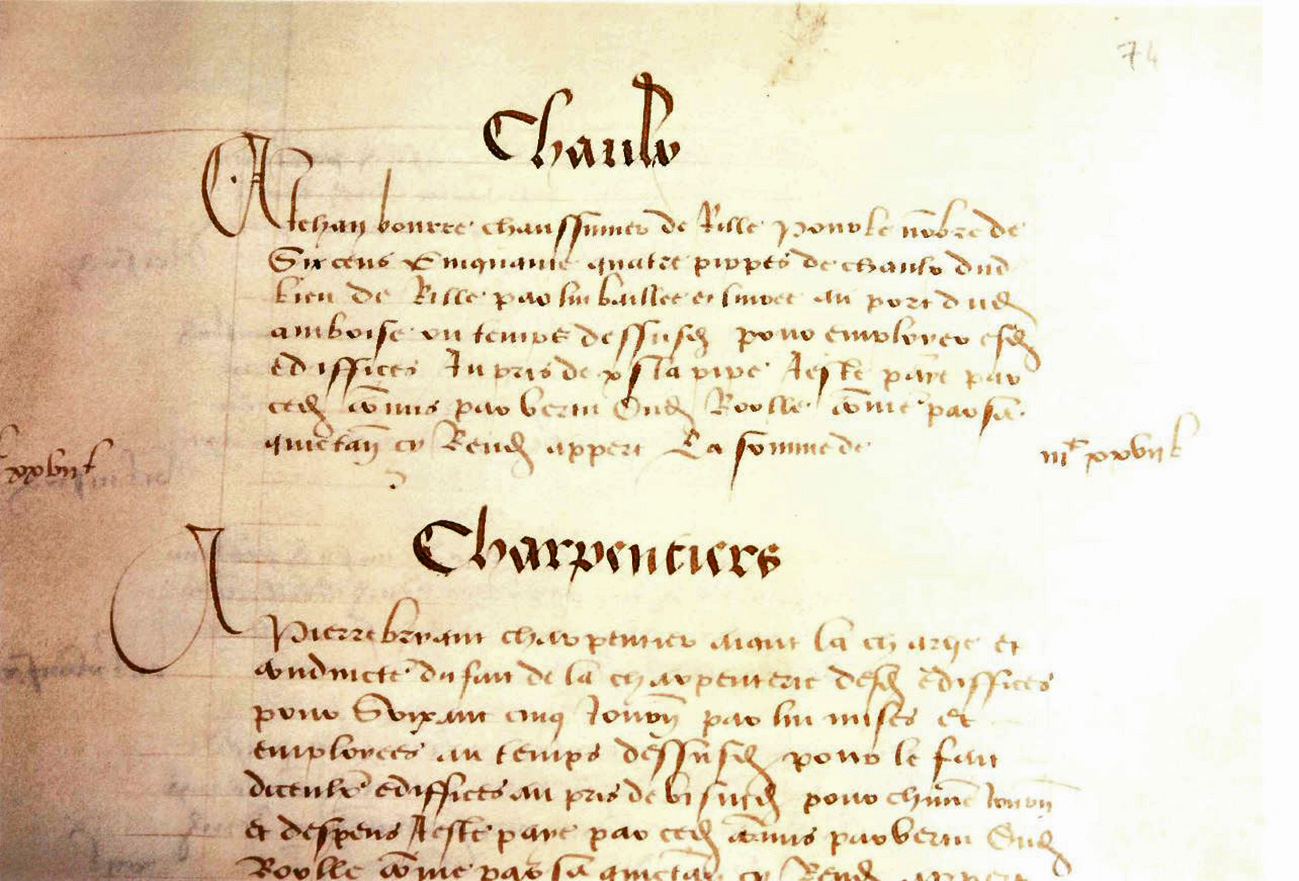 74
Chaulx
A Jehan bourre chaussumier de Rille pour le nõbre de
Six cens Cinquante quatre pippes de chaulx dud
lieu de Rille par lui baillee et livree au port dud
amboise ou temps dessusd pour emploier esd
ediffices Au pris de x s la pipe A este paie par
ced cõmis par vertu Dud Roolle cõme par sa
quictañ cy Rend appert La somme de
iiiᶜ xxvii ł
Charpentiers
A Pierre bryant charpentier aiant la charge et
conduicte du fait de la charpenterie desd ediffices
pour Soixant cinq Journ par lui mises et
emploiees au temps dessusd pour le fait
diceulx ediffices au pris de vi s iii d pour chũne Journ
et despens A este paye par ced cõmis par vertu Dud
Roolle cõme par sa quictañ cy Rend appert